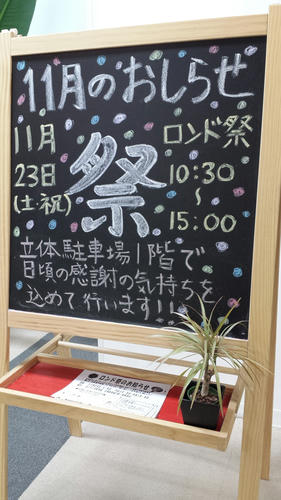 11月のおしらせ
11月
23日
(土・祝)
祭
ロンド祭
10:30
〜
15:00
立体駐車場1階で
日頃の感謝の気持ちを
込めて行います!!
ロンド祭のお知らせ